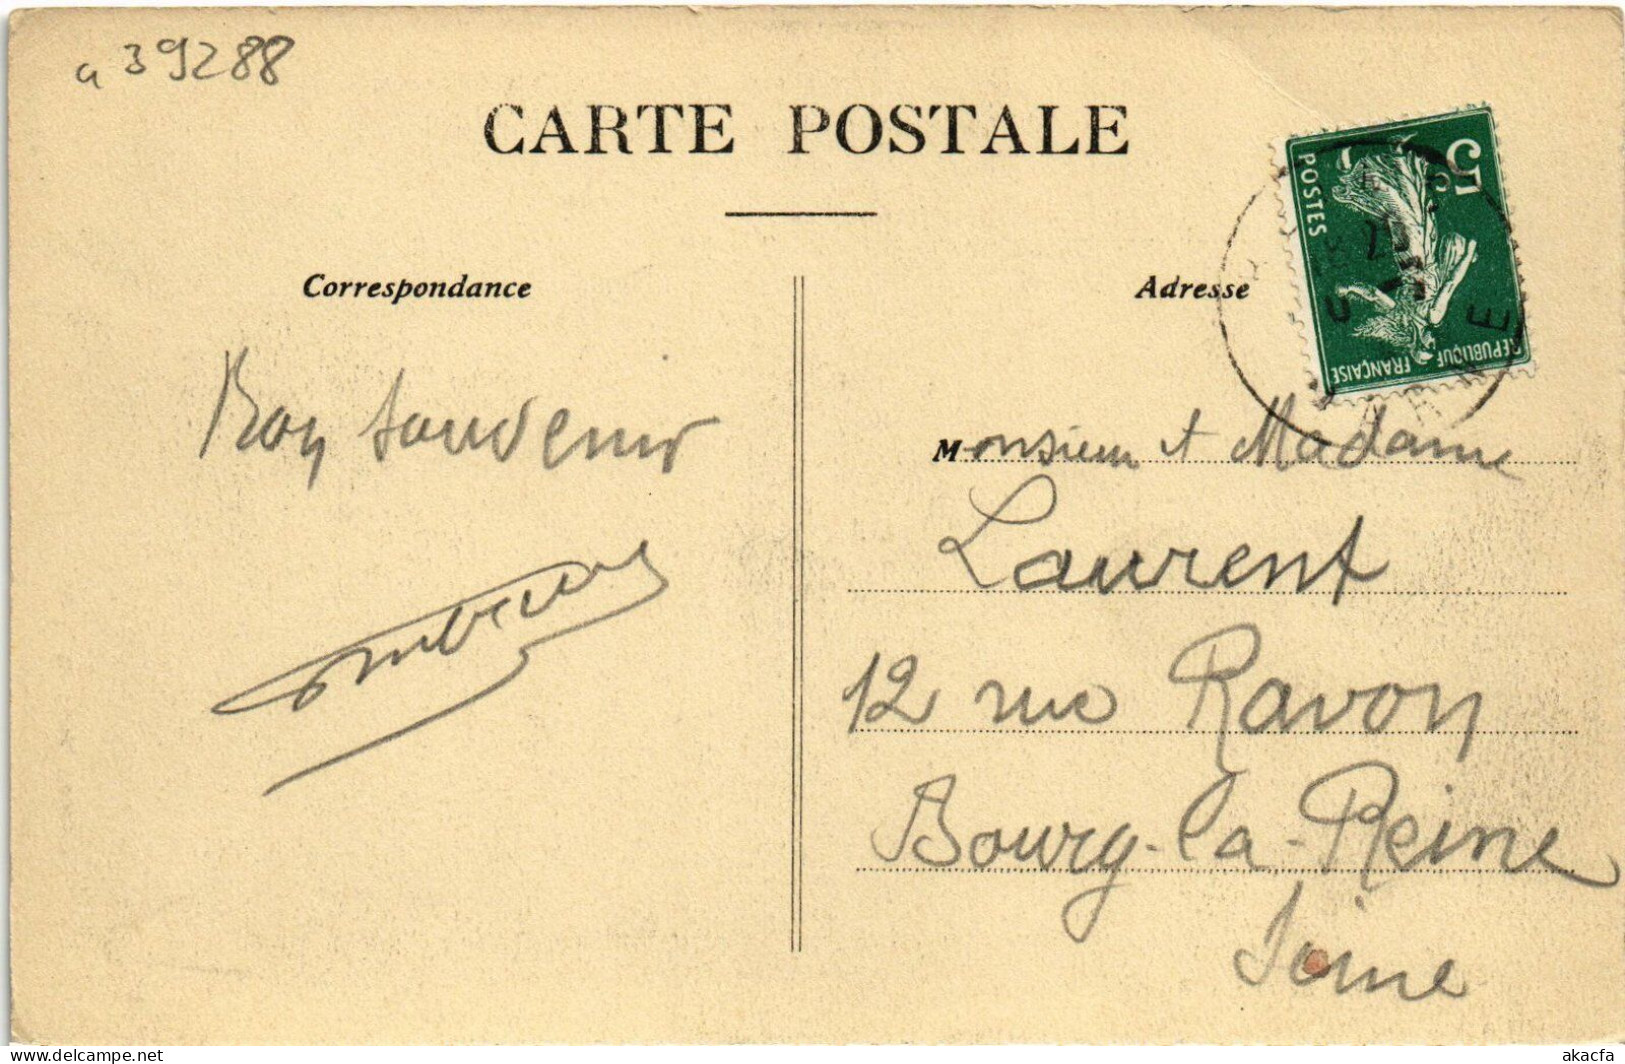 a 39288
CARTE POSTALE
Correspondance
Adresse
5
POSTES
REPUBLIQUE FRANÇAISE
Bon souvenir
Monsieur et Madame
Laurent
12 rue Ravon
Bourg-la-Reine
Seine
delcampe.net
akacfa